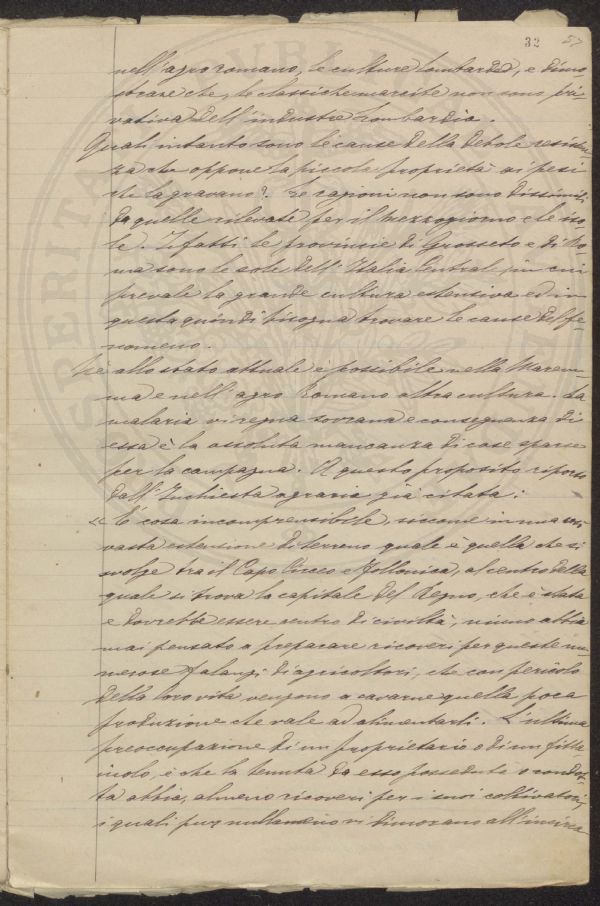 32 57
nell'agro romano, le culture lombarde, e dimo-
strare che, le classiche marcite non sono pri-
vativa dell'industre Lombardia.
Quali intanto sono le cause della debole resisten-
za che oppone la piccola proprietà ai pesi
che la gravano? Le cagioni non sono dissimili
da quelle rilevate per il mezzogiorno e le iso-
le. Ifatti le provincie di Grosseto e di Ro-
ma sono le sole dell'Italia Centrale in cui
prevale la grande cultura estensiva ed in
questa quindi bisogna trovare le cause del fe-
nomeno.
Nè allo stato attuale è possibile nella Marem-
ma e nell'agro Romano altra cultura. La
malaria vi regna sovrana e conseguenza di
essa è la assoluta mancanza di case sparse
per la campagna. A questo proposito riporto
dall'Inchiesta agraria già citata:
« È cosa incomprensibile, siccome in una così
vasta estensione di terreno quale è quella che si
svolge tra il Capo Circeo e Follonica, al centro della
quale si trova la capitale del Regno, che è stata
e dovrebbe essere centro di civiltà, niuno abbia
mai pensato a preparare ricoveri per queste nu-
merose falangi d'agricoltori, che con pericolo
della loro vita vengono a cavarne quella poca
produzione che vale ad alimentarli. L'ultima
preoccupazione di un proprietario o di un fitta-
iuolo, è che la tenuta da esso posseduta o condot-
ta abbia, almeno ricoveri per i suoi coltivatori,
i quali pur nullameno vi dimorano all'incirca